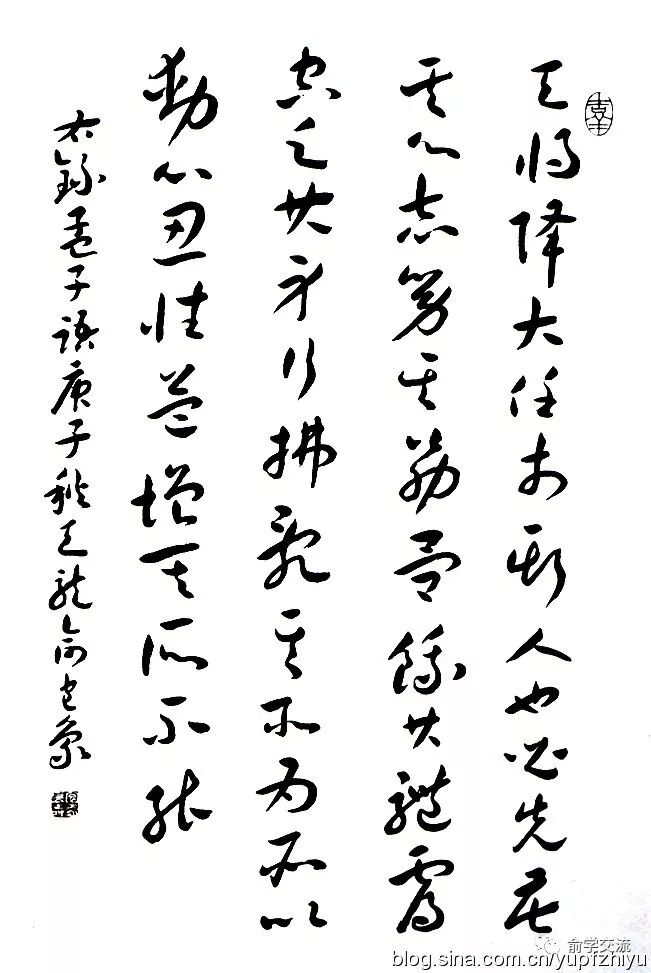 天將降大任於斯人也必先苦
其心志勞其筋骨餓其體膚
空乏其身行拂亂其所為所以
動心忍性益增其所不能
右錄孟子語庚子秋 龍俞 象
俞学交流
blog.sina.com.cn/yupfzhiyu